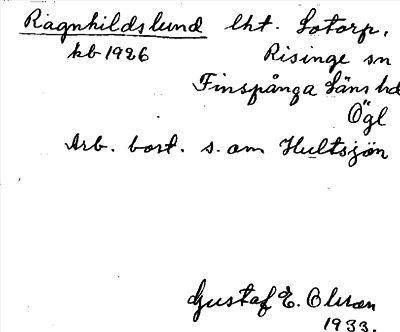 Ragnhildslund lht. Lotorp,
kb 1926 Risinge sn
Finspånga läns hd
Ögl
Arb. bost. s. om Hultsjön
Gustaf E. Olsson
1933.